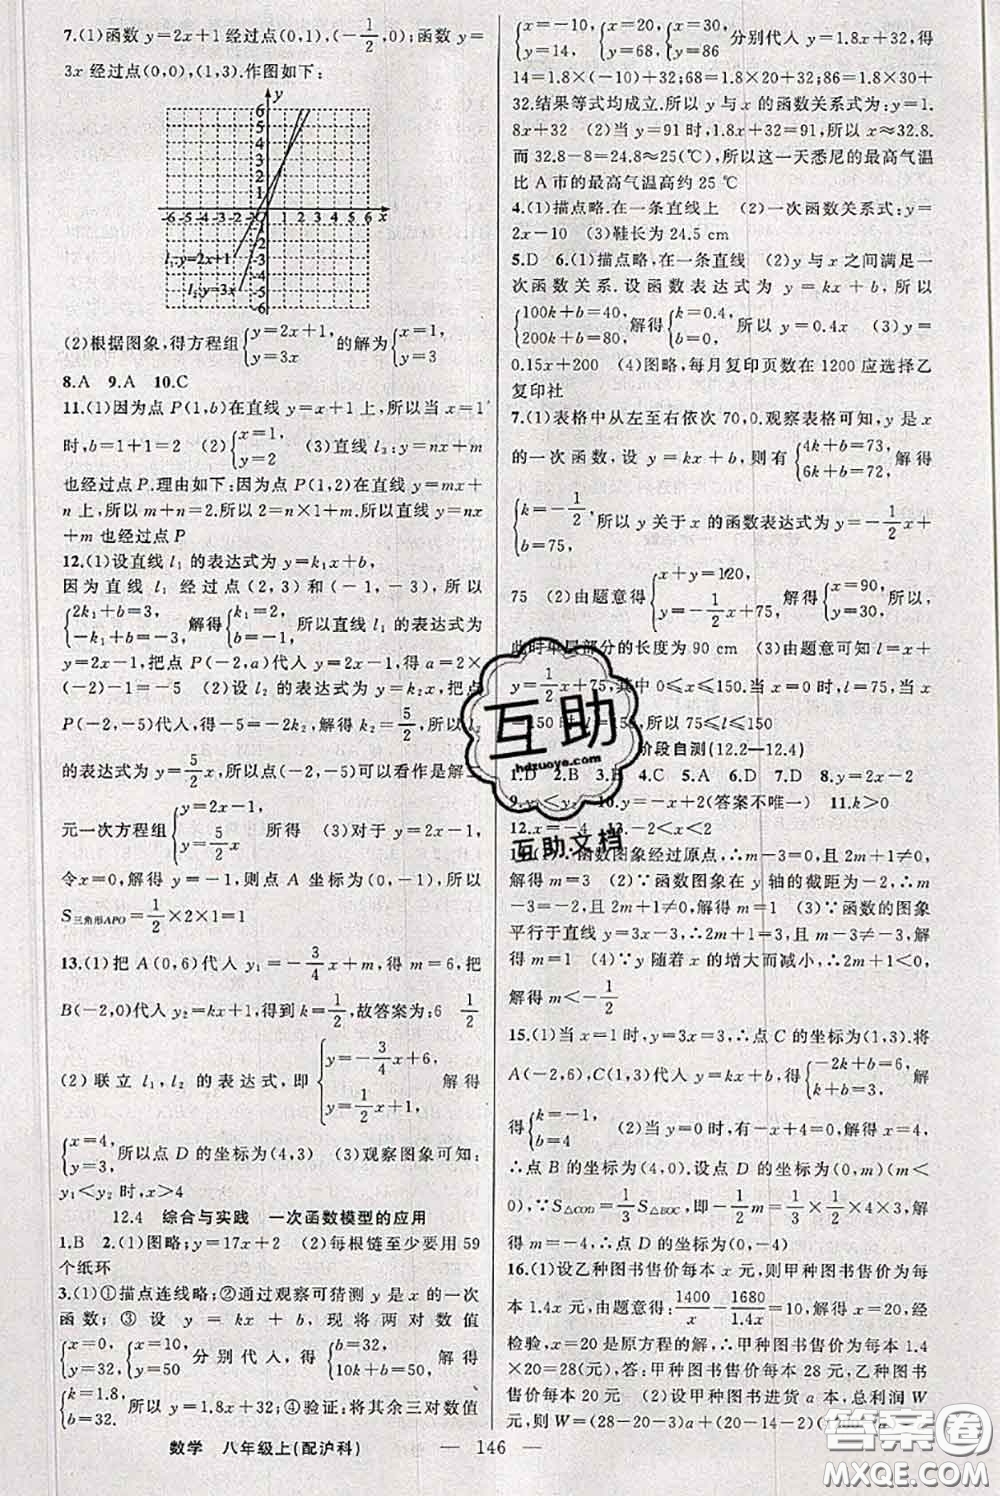 7.(1)函数 y=2x+1 经过点(0,1),(-1/2,0);函数 y=
3x 经过点(0,0),(1,3).作图如下:
y
6
5
4
3
2
1
-6 -5 -4 -3 -2 -1 1 2 3 4 5 6 x
-1
-2
-3
-4
-5
-6
l₁:y=2x+1
l₂:y=3x
(2)根据图象,得方程组{y=2x+1, y=3x 的解为{x=1, y=3
8.A 9.A 10.C
11.(1)因为点 P(1,b)在直线 y=x+1 上,所以当 x=1
时,b=1+1=2 (2){x=1, y=2 (3)直线 l₃:y=nx+m
也经过点 P.理由如下:因为点 P(1,2)在直线 y=mx+
n 上,所以 m+n=2.所以 2=n×1+m.所以直线 y=nx
+m 也经过点 P
12.(1)设直线 l₁ 的表达式为 y=k₁x+b,
因为直线 l₁ 经过点(2,3)和(-1,-3),所以
{2k₁+b=3, -k₁+b=-3, 解得{k₁=2, b=-1. 所以直线 l₁ 的表达式为
y=2x-1,把点 P(-2,a)代入得 a=2×
(-2)-1=-5 (2)设 l₂ 的表达式为 y=k₂x,把点
P(-2,-5)代入,得-5=-2k₂,解得 k₂=5/2,所以 l₂
的表达式为 y=5/2x,所以点(-2,-5)可以看作是解二
元一次方程组{y=2x-1, y=5/2x 所得 (3)对于 y=2x-1,
令x=0,解得 y=-1,则点 A 坐标为(0,-1),所以
S三角形APO=1/2×2×1=1
13.(1)把 A(0,6)代入 y₁=-3/4x+m,得 m=6,把
B(-2,0)代入 y₂=kx+1,得到 k=1/2,故答案为:6 1/2
(2)联立 l₁,l₂ 的表达式,即{y=-3/4x+6, y=1/2x+1, 解得
{x=4, y=3, 所以点 D 的坐标为(4,3) (3)观察图象可知:
y₁<y₂ 时,x>4
12.4 综合与实践 一次函数模型的应用
1.B 2.(1)图略;y=17x+2 (2)每根链至少要用 59
个纸环
3.(1)①描点连线略;②通过观察可猜测 y 是 x 的一次
函数;③设 y=kx+b,现将两对数值
{x=0, y=32, {x=10, y=50 分别代入,得{b=32, 10k+b=50, 解得
{k=1.8, b=32. 所以 y=1.8x+32;④验证:将其余三对数值
{x=-10, y=14, {x=20, y=68, {x=30, y=86 分别代入 y=1.8x+32,得
14=1.8×(-10)+32;68=1.8×20+32;86=1.8×30+
32.结果等式均成立.所以 y 与 x 的函数关系式为:y=1.
8x+32 (2)当 y=91 时,1.8x+32=91,所以 x≈32.8.
而 32.8-8=24.8≈25(℃),所以这一天悉尼的最高气温
比 A 市的最高气温高约 25 ℃
4.(1)描点略.在一条直线上 (2)一次函数关系式:y=
2x-10 (3)鞋长为 24.5 cm
5.D 6.(1)描点略,在一条直线 (2)y 与 x 之间满足一
次函数关系.设函数表达式为 y=kx+b,所以
{100k+b=40, 200k+b=80, 解得{k=0.4, b=0, 所以 y=0.4x (3)y=
0.15x+200 (4)图略,每月复印页数在 1200 应选择乙
复印社
7.(1)表格中从左至右依次 70,0.观察表格可知,y 是 x
的一次函数,设 y=kx+b,则有{4k+b=73, 6k+b=72, 解得
{k=-1/2, b=75, 所以 y 关于 x 的函数表达式为 y=-1/2x+
75 (2)由题意得{x+y=120, y=-1/2x+75, 解得{x=90, y=30, 所以,
此时单层部分的长度为 90 cm (3)由题意可知 l=x+
y=1/2x+75,其中 0≤x≤150.当 x=0 时,l=75,当 x
=150 时,l=150,所以 75≤l≤150
阶段自测(12.2—12.4)
1.D 2.B 3.B 4.C 5.A 6.D 7.D 8.y=2x-2
9.y<y 10.y=-x+2(答案不唯一) 11.k>0
12.x=-4 13.-2<x<2
14.(1)∵函数图象经过原点,∴m-3=0,且 2m+1≠0,
解得 m=3 (2)∵函数图象在 y 轴的截距为-2,∴m
-3=-2,且 2m+1≠0,解得 m=1 (3)∵函数的图象
平行于直线 y=3x-3,∴2m+1=3,且 m-3≠-3,解
得 m=1 (4)∵y 随着 x 的增大而减小,∴2m+1<0,
解得 m<-1/2
15.(1)当 x=1 时,y=3x=3,∴点 C 的坐标为(1,3).将
A(-2,6),C(1,3)代入 y=kx+b,得{-2k+b=6, k+b=3, 解
得{k=-1, b=4 (2)当 y=0 时,有-x+4=0,解得 x=4,
∴点 B 的坐标为(4,0).设点 D 的坐标为(0,m)(m<
0),∵S△COD=1/3S△BOC,即-1/2m=1/3×1/2×4×3,解
得 m=-4,∴点 D 的坐标为(0,-4)
16.(1)设乙种图书售价每本 x 元,则甲种图书售价为每
本 1.4x 元,由题意得:1400/x-1680/1.4x=10,解得 x=20,经
检验,x=20 是原方程的解,∴甲种图书售价为每本 1.4
×20=28(元),答:甲种图书售价每本 28 元,乙种图书售
价每本 20 元 (2)设甲种图书进货 a 本,总利润 W
元,则 W=(28-20-3)a+(20-14-2)(
数学 八年级上(配沪科) — 146 —
互助
hdzuoye.com
互助文档
答案卷
MXQE.COM